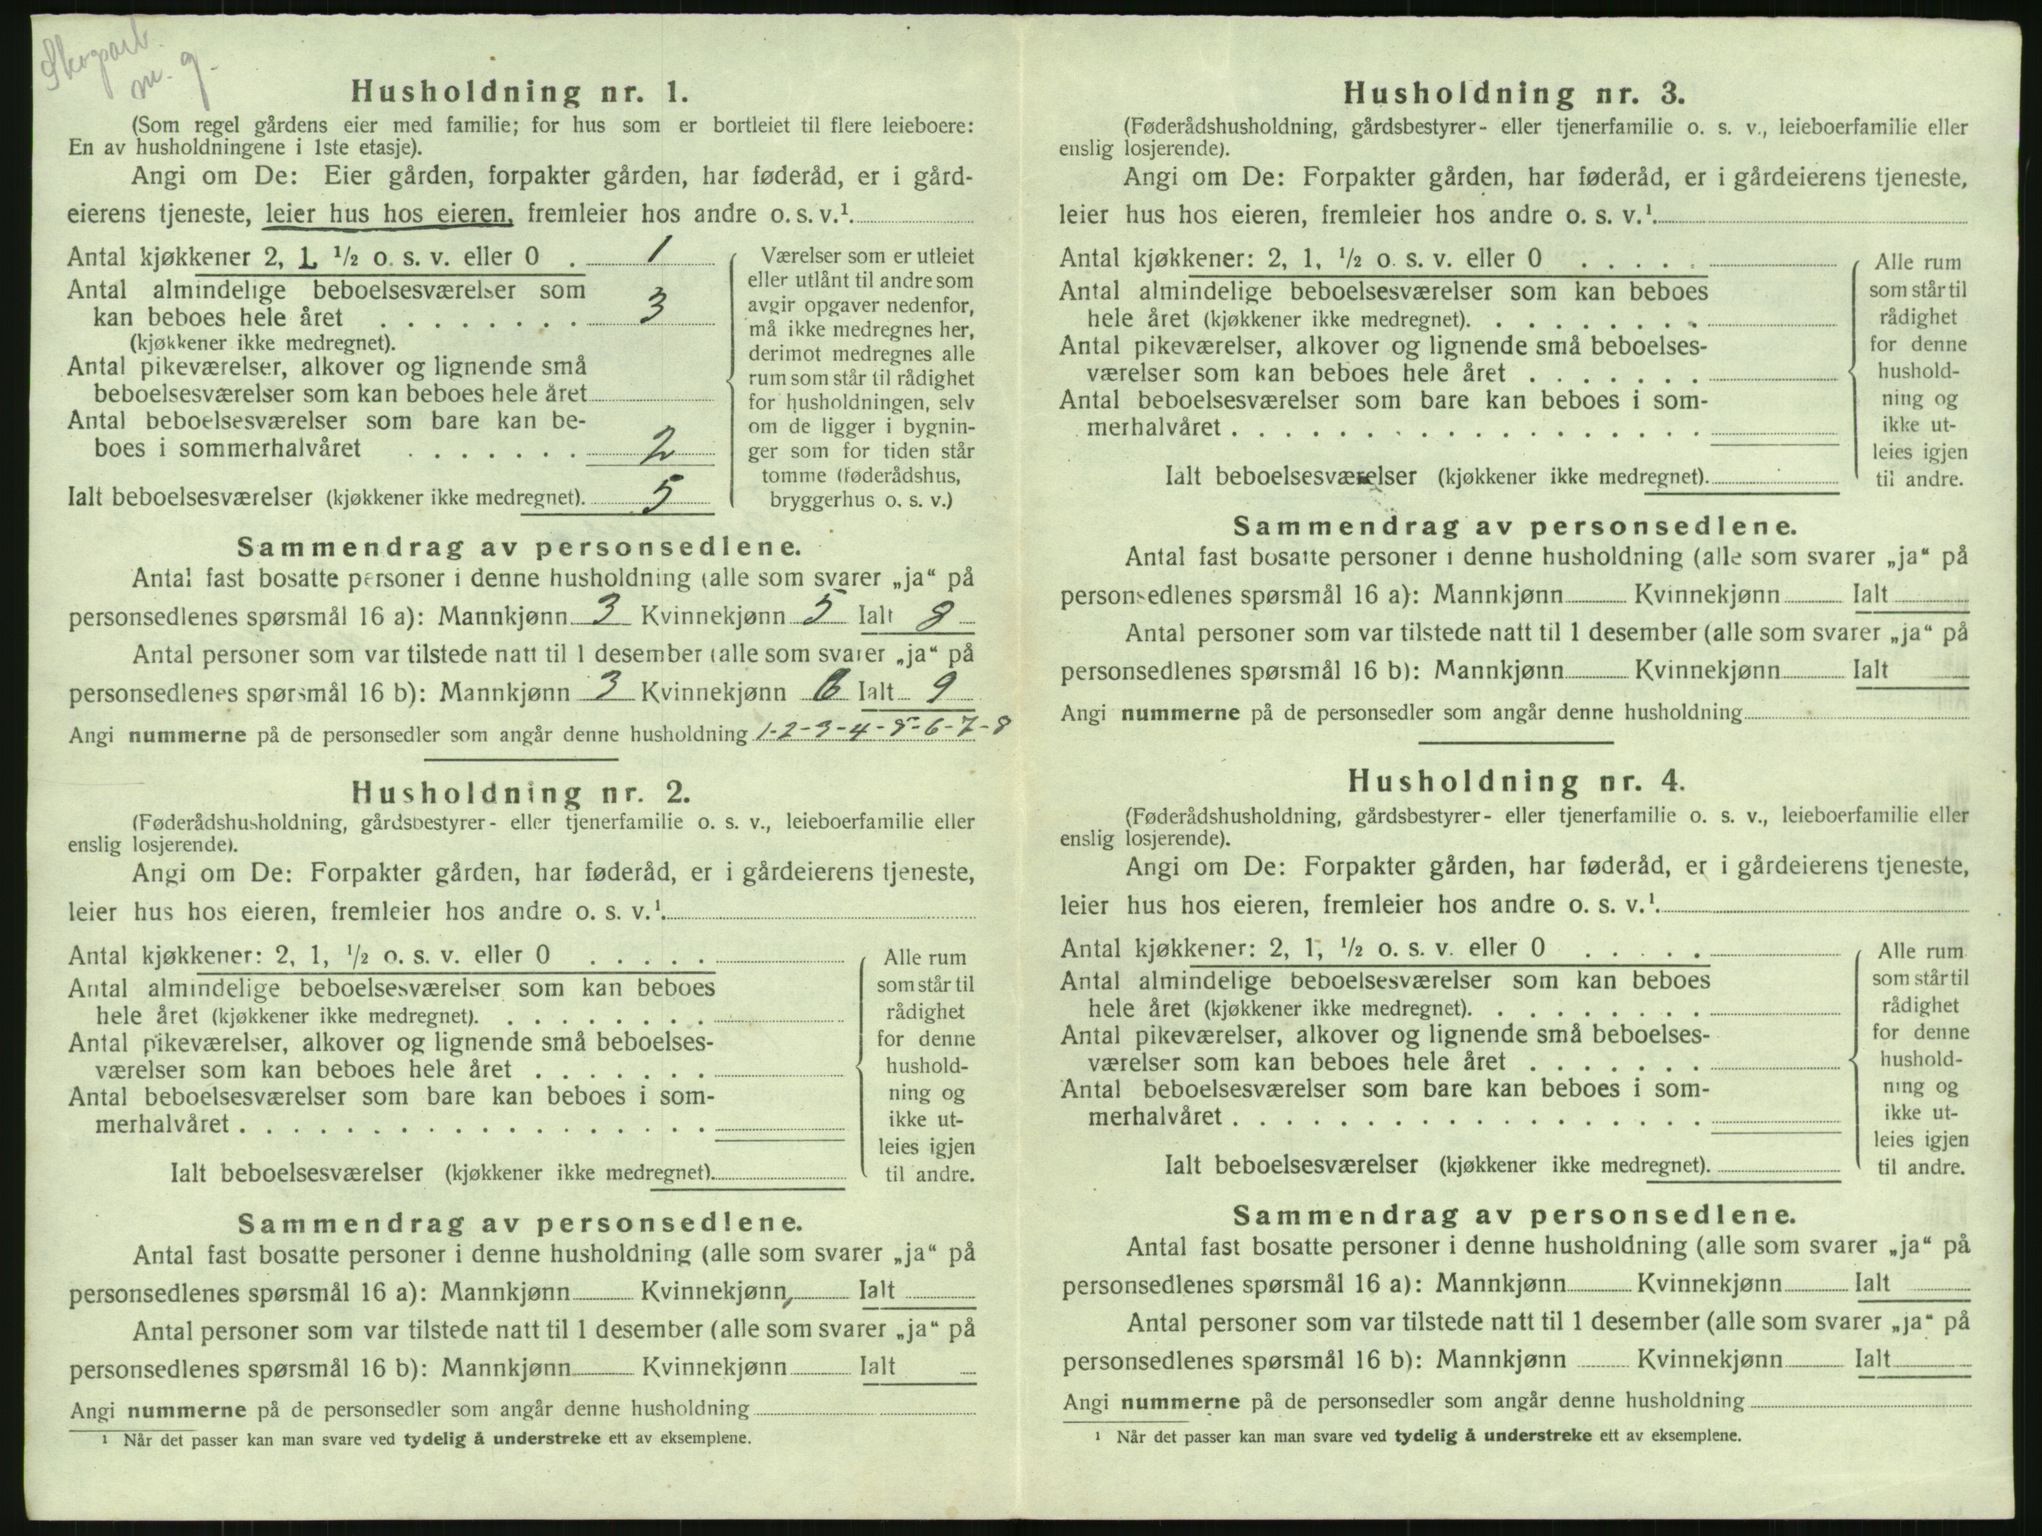 Skogsarb.
m. g.
Husholdning nr. 1.
(Som regel gårdens eier med familie; for hus som er bortleiet til flere leieboere:
En av husholdningene i 1ste etasje).
Angi om De: Eier gården, forpakter gården, har føderåd, er i gård-
eierens tjeneste, leier hus hos eieren, fremleier hos andre o. s. v.¹
Antal kjøkkener 2, 1, ½ o. s. v. eller 0 . 1
Antal almindelige beboelsesværelser som
kan beboes hele året . . . . . . . . 3
(kjøkkener ikke medregnet).
Antal pikeværelser, alkover og lignende små
beboelsesværelser som kan beboes hele året
Antal beboelsesværelser som bare kan be-
boes i sommerhalvåret . . . . . . . 2
Ialt beboelsesværelser (kjøkkener ikke medregnet). 5
Værelser som er utleiet
eller utlånt til andre som
avgir opgaver nedenfor,
må ikke medregnes her,
derimot medregnes alle
rum som står til rådighet
for husholdningen, selv
om de ligger i bygnin-
ger som for tiden står
tomme (føderådshus,
bryggerhus o. s. v.)
Sammendrag av personsedlene.
Antal fast bosatte personer i denne husholdning (alle som svarer „ja“ på
personsedlenes spørsmål 16 a): Mannkjønn 3 Kvinnekjønn 5 Ialt 8
Antal personer som var tilstede natt til 1 desember (alle som svarer „ja“ på
personsedlenes spørsmål 16 b): Mannkjønn 3 Kvinnekjønn 6 Ialt 9
Angi nummerne på de personsedler som angår denne husholdning 1-2-3-4-5-6-7-8
Husholdning nr. 2.
(Føderådshusholdning, gårdsbestyrer- eller tjenerfamilie o. s. v., leieboerfamilie eller
enslig losjerende).
Angi om De: Forpakter gården, har føderåd, er i gårdeierens tjeneste,
leier hus hos eieren, fremleier hos andre o. s. v.¹
Antal kjøkkener: 2, 1, ½ o. s. v. eller 0 . . . . .
Antal almindelige beboelsesværelser som kan beboes
hele året (kjøkkener ikke medregnet). . . . . . . . .
Antal pikeværelser, alkover og lignende små beboelses-
værelser som kan beboes hele året . . . . . . .
Antal beboelsesværelser som bare kan beboes i som-
merhalvåret . . . . . . . . . . . . . . . . . .
Ialt beboelsesværelser (kjøkkener ikke medregnet).
Alle rum
som står til
rådighet
for denne
hushold-
ning og
ikke ut-
leies igjen
til andre.
Sammendrag av personsedlene.
Antal fast bosatte personer i denne husholdning (alle som svarer „ja“ på
personsedlenes spørsmål 16 a): Mannkjønn Kvinnekjønn Ialt
Antal personer som var tilstede natt til 1 desember (alle som svarer „ja“ på
personsedlenes spørsmål 16 b): Mannkjønn Kvinnekjønn Ialt
Angi nummerne på de personsedler som angår denne husholdning
¹ Når det passer kan man svare ved tydelig å understreke ett av eksemplene.
Husholdning nr. 3.
(Føderådshusholdning, gårdsbestyrer- eller tjenerfamilie o. s. v., leieboerfamilie eller
enslig losjerende).
Angi om De: Forpakter gården, har føderåd, er i gårdeierens tjeneste,
leier hus hos eieren, fremleier hos andre o. s. v.¹
Antal kjøkkener: 2, 1, ½ o. s. v. eller 0 . . . . .
Antal almindelige beboelsesværelser som kan beboes
hele året (kjøkkener ikke medregnet). . . . . . . . .
Antal pikeværelser, alkover og lignende små beboelses-
værelser som kan beboes hele året . . . . . . .
Antal beboelsesværelser som bare kan beboes i som-
merhalvåret . . . . . . . . . . . . . . . . . .
Ialt beboelsesværelser (kjøkkener ikke medregnet).
Alle rum
som står til
rådighet
for denne
hushold-
ning og
ikke ut-
leies igjen
til andre.
Sammendrag av personsedlene.
Antal fast bosatte personer i denne husholdning (alle som svarer „ja“ på
personsedlenes spørsmål 16 a): Mannkjønn Kvinnekjønn Ialt
Antal personer som var tilstede natt til 1 desember (alle som svarer „ja“ på
personsedlenes spørsmål 16 b): Mannkjønn Kvinnekjønn Ialt
Angi nummerne på de personsedler som angår denne husholdning
Husholdning nr. 4.
(Føderådshusholdning, gårdsbestyrer- eller tjenerfamilie o. s. v., leieboerfamilie eller
enslig losjerende).
Angi om De: Forpakter gården, har føderåd, er i gårdeierens tjeneste,
leier hus hos eieren, fremleier hos andre o. s. v.¹
Antal kjøkkener: 2, 1, ½ o. s. v. eller 0 . . . . .
Antal almindelige beboelsesværelser som kan beboes
hele året (kjøkkener ikke medregnet). . . . . . . . .
Antal pikeværelser, alkover og lignende små beboelses-
værelser som kan beboes hele året . . . . . . .
Antal beboelsesværelser som bare kan beboes i som-
merhalvåret . . . . . . . . . . . . . . . . . .
Ialt beboelsesværelser (kjøkkener ikke medregnet).
Alle rum
som står til
rådighet
for denne
hushold-
ning og
ikke ut-
leies igjen
til andre.
Sammendrag av personsedlene.
Antal fast bosatte personer i denne husholdning (alle som svarer „ja“ på
personsedlenes spørsmål 16 a): Mannkjønn Kvinnekjønn Ialt
Antal personer som var tilstede natt til 1 desember (alle som svarer „ja“ på
personsedlenes spørsmål 16 b): Mannkjønn Kvinnekjønn Ialt
Angi nummerne på de personsedler som angår denne husholdning
¹ Når det passer kan man svare ved tydelig å understreke ett av eksemplene.